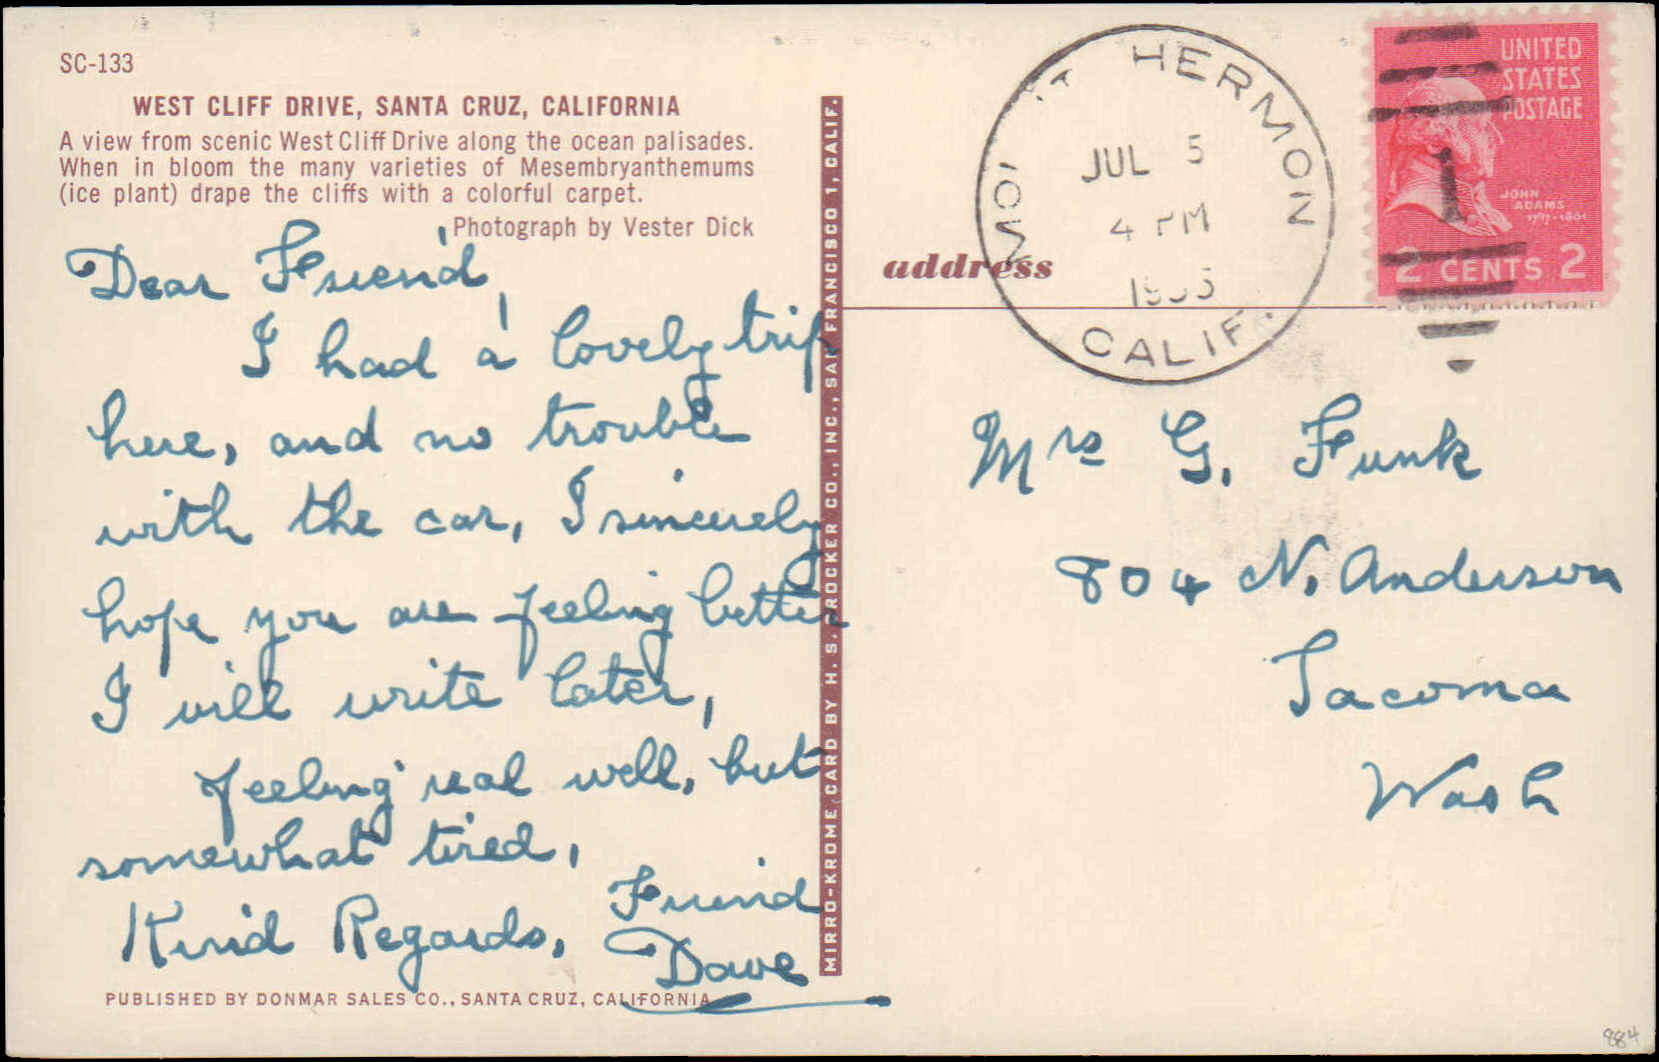 SC-133
WEST CLIFF DRIVE, SANTA CRUZ, CALIFORNIA
A view from scenic West Cliff Drive along the ocean palisades.
When in bloom the many varieties of Mesembryanthemums
(ice plant) drape the cliffs with a colorful carpet.
Photograph by Vester Dick
Dear Friend,
I had a lovely trip
here, and no trouble
with the car, I sincerely
hope you are feeling better
I will write later,
feeling real well, but
somewhat tired,
Kind Regards, Friend
Dave
PUBLISHED BY DONMAR SALES CO., SANTA CRUZ, CALIFORNIA
MIRRO-KROME CARD BY H. S. CROCKER CO., INC., SAN FRANCISCO 1, CALIF.
address
HERMON
JUL 5
4 PM
CALIF.
UNITED
STATES
POSTAGE
1
JOHN
ADAMS
2 CENTS 2
Mrs G. Funk
804 N. Anderson
Tacoma
Wash
884